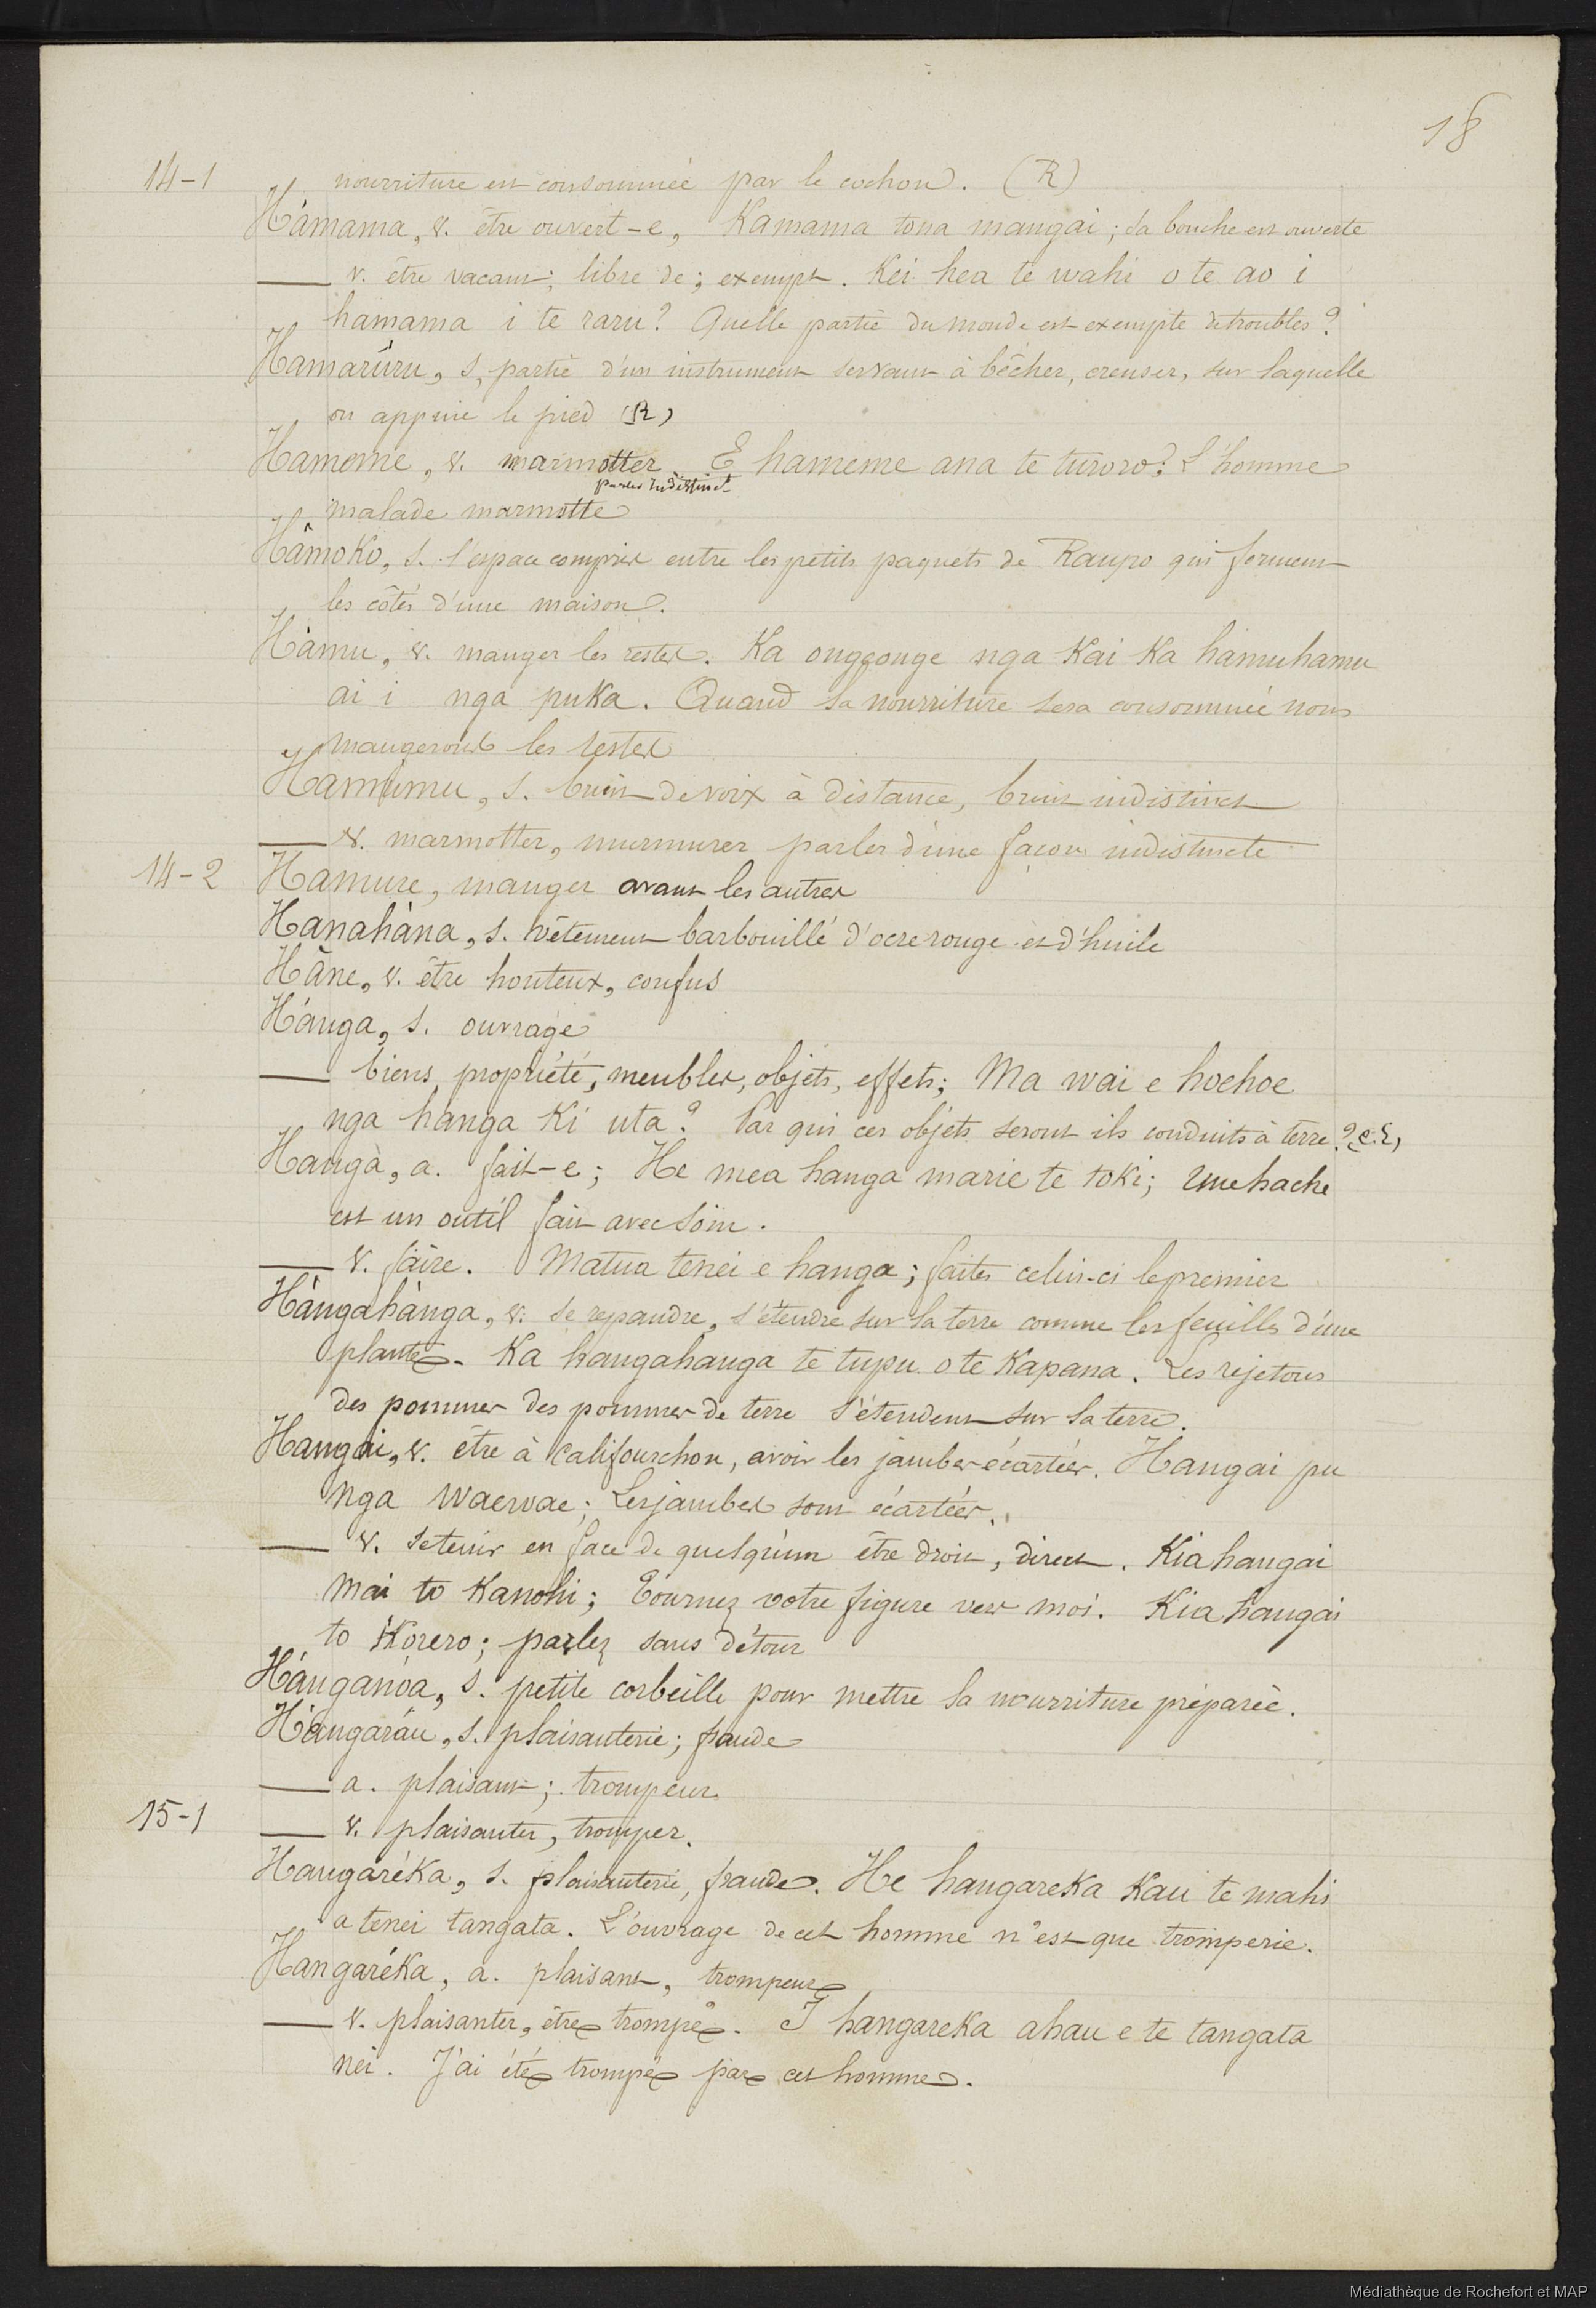 18
14-1 nourriture est consommée par le cochon. (R)
Hàmama, v. être ouvert-e, Kamama tona mangai; sa bouche est ouverte
— v. être vacant; libre de; exempt. Kei hea te wahi o te ao i
hamama i te raru? Quelle partie du monde est exempte de troubles?
Hamarúru, s, partie d'un instrument servant à bêcher, creuser, sur laquelle
on appuie le pied (R)
Hameme, v. marmotter. E hameme ana te turoro? L'homme
parler indistinct
malade marmotte
Hâmoko, s. l'espace compris entre les petits paquets de Raupo qui forment
les côtés d'une maison.
Hàmu, v. manger les restes. Ka ongeonge nga Kai Ka hamuhamu
ai i nga puka. Quand la nourriture sera consommée nous
mangerons les restes
Hamúmu, s. bruit de voix à distance, bruit indistinct
— v. marmotter, murmurer parler d'une façon indistincte
14-2 Hamure, manger avant les autres
Hanahàna, s. vêtement barbouillé d'ocre rouge et d'huile
Hâne, v. être honteux, confus
Hánga, s. ouvrage
— biens, propriété, meubles, objets, effets; Ma wai e hoehoe
nga hanga Ki uta? Par qui ces objets seront ils conduits à terre?
Hangà, a. fait-e; He mea hanga marie te toki; Une hache
est un outil fait avec soin.
— v. faire. Matua tenei e hanga; faites celui-ci le premier
Hàngahànga, v. se repandre, s'étendre sur la terre comme les feuilles d'une
plante. Ka hangahanga te tupu o te Kapana. Les rejetons
des pommes des pommes de terre s'étendent sur la terre.
Hangai, v. être à califourchon, avoir les jambes écartées. Hangai pu
nga waewae; Les jambes sont écartées.
— v. se tenir en face de quelqu'un être droit, direct. Kia hangai
mai to Kanohi; Tournez votre figure vers moi. Kia hangai
to Korero; parlez sans détour
Hánganóa, s. petite corbeille pour mettre la nourriture préparée.
Hángaráu, s. plaisanterie; fraude
— a. plaisant; trompeur
15-1 — v. plaisanter, tromper.
Hangaréka, s. plaisanterie, fraude. He hangareka Kau te mahi
a tenei tangata. L'ouvrage de cet homme n'est que tromperie.
Hangaréka, a. plaisant, trompeur
— v. plaisanter, être trompé. I hangareka ahau e te tangata
nei. J'ai été trompé par cet homme.
Médiathèque de Rochefort et MAP